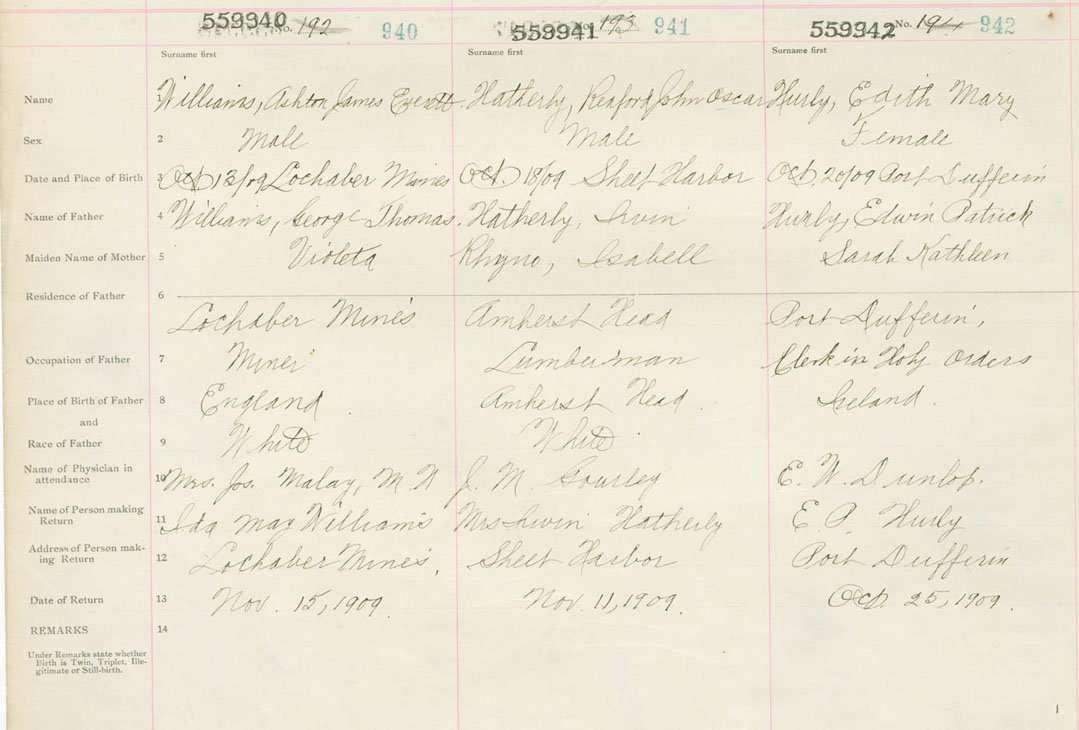 559940 No. 192 940 559941 No. 193 941 559942 No. 194 942
Surname first Surname first Surname first
Name 1 Williams, Ashton James Everett Hatherly, Reaford John Oscar Hurly, Edith Mary
Sex 2 Male Male Female
Date and Place of Birth 3 Oct 13/09 Lochaber Mines Oct 18/09 Sheet Harbor Oct. 20/09 Port Dufferin
Name of Father 4 Williams, George Thomas. Hatherly, Irvin Hurly, Edwin Patrick
Maiden Name of Mother 5 Violeta Rhyno, Isabell Sarah Kathleen
Residence of Father 6
Lochaber Mines Amherst Head Port Dufferin,
Occupation of Father 7 Miner Lumberman Clerk in Holy Orders
Place of Birth of Father 8 England Amherst Head. Ireland.
and
Race of Father 9 White White
Name of Physician in
attendance 10 Mrs. Jos. Malay, M. W J. M. Gourley E. W. Dunlop.
Name of Person making
Return 11 Ida May Williams Mrs Irvin Hatherly E. P. Hurly
Address of Person mak-
ing Return 12 Lochaber Mines, Sheet Harbor Port Dufferin
Date of Return 13 Nov. 15, 1909 Nov. 11, 1909. Oct. 25, 1909.
REMARKS 14
Under Remarks state whether
Birth is Twin, Triplet, Ille-
gitimate or Still-birth.